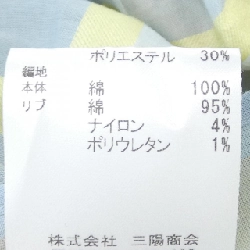 ポリエステル 30%
編地
本体 綿 100%
リブ 綿 95%
ナイロン 4%
ポリウレタン 1%
株式会社 三陽商会